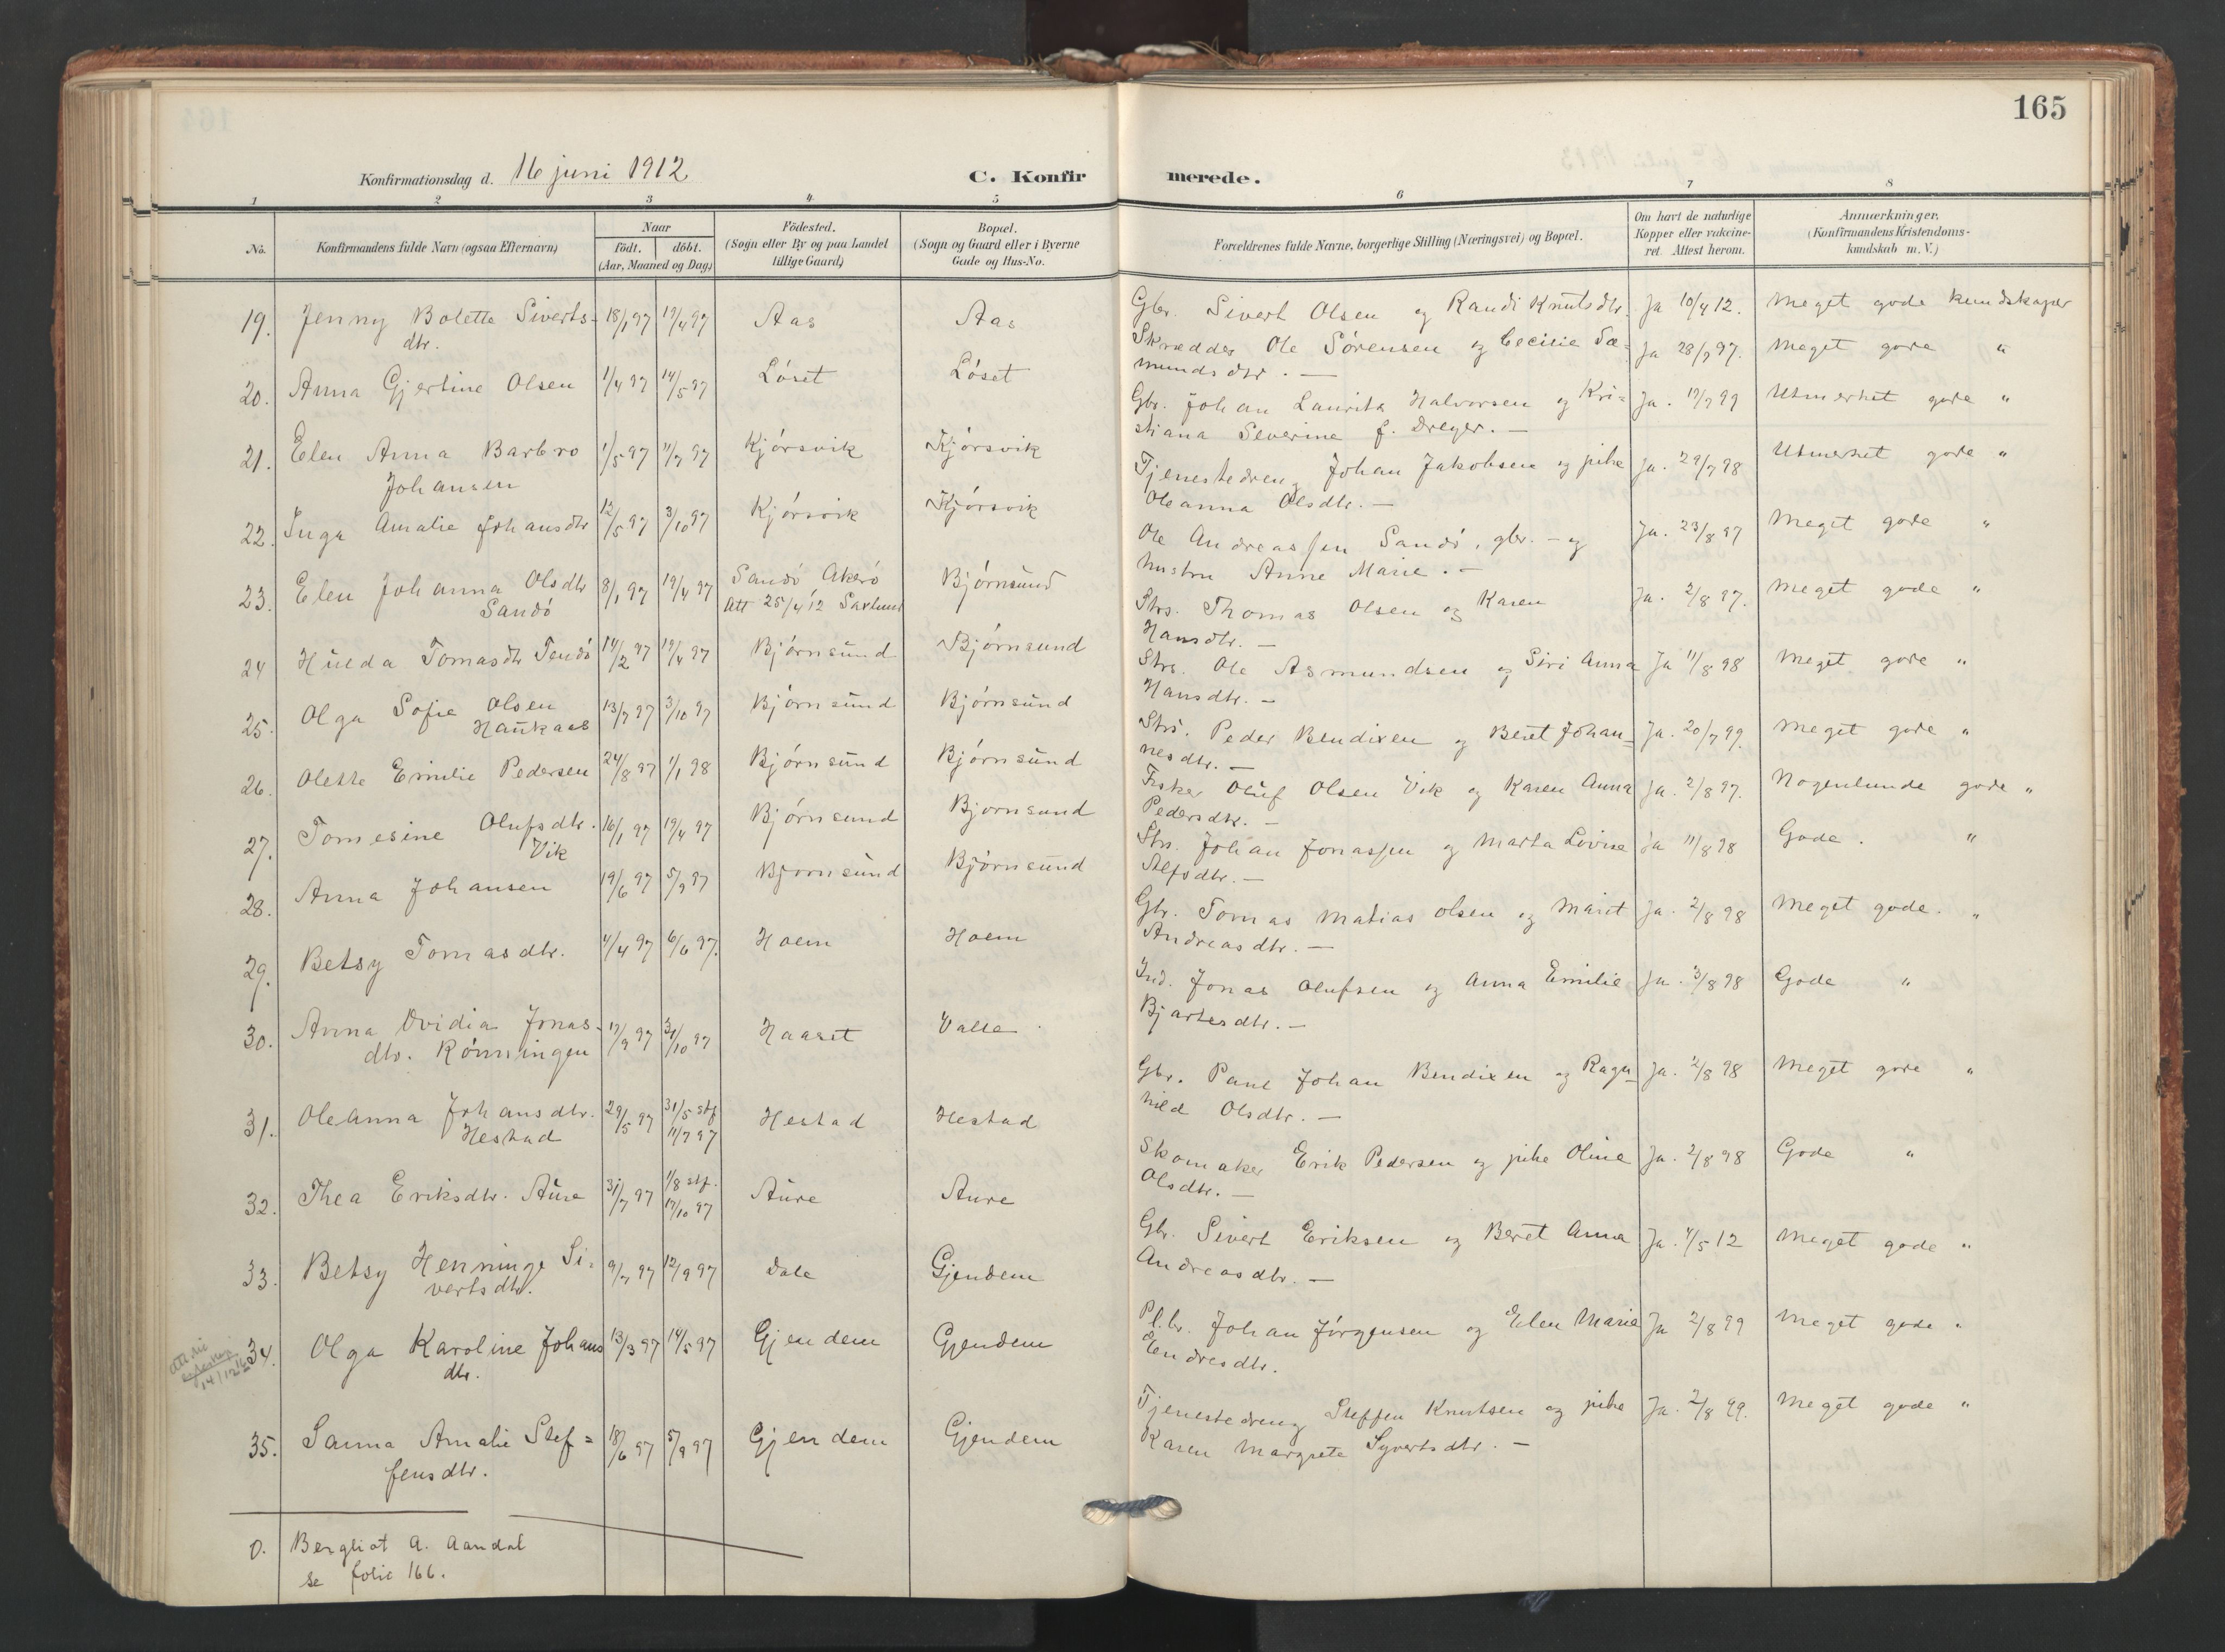 165
Konfirmationsdag d. 16 juni 1912
C. Konfirmerede.
1 2 3 4 5 6 7 8
No.
Konfirmandens fulde Navn (ogsaa Efternavn)
Naar
født. døbt.
(Aar, Maaned og Dag)
Fødested.
(Sogn eller By og paa Landet
tillige Gaard)
Bopæl.
(Sogn og Gaard eller i Byerne
Gade og Hus-No.
Forældrenes fulde Navne, borgerlige Stilling (Næringsvei) og Bopæl.
Om havt de naturlige
Kopper eller vakcine-
ret. Attest herom.
Anmærkninger.
(Konfirmandens Kristendoms-
kundskab m. V.)
19. Jenny Bolette Siverts- 18/1 97 19/4 97 Aas Aas Gbr. Sivert Olsen og Randi Knutsdtr. Ja 10/4 12. Meget gode kundskaper
dtr.
20. Anna Gjertine Olsen 1/4 97 14/5 97 Løset Løset Skrædder Ole Sørensen og Cecilie Sæ- Ja 28/7 97. Meget gode "
mundsdtr. —
21. Elen Anna Barbro 1/5 97 11/7 97 Kjørsvik Kjørsvik Gbr. Johan Laurits Halvorsen og Kri= Ja. 17/7 99 Utmerket gode "
Johansen stiana Severine f. Dreyer. —
22. Inga Amalie Johansdtr 12/5 97 3/10 97 Kjørsvik Kjørsvik Tjenestedreng Johan Jakobsen og pike Ja. 29/7 98 Utmerket gode "
Oleanna Olsdtr. —
23. Elen Johanna Olsdtr 8/1 97 19/4 97 Sandø Akerø Bjørnsund Ole Andreassen Sandø, gbr. - og Ja. 23/8 97 Meget gode "
Sandø Att 25/4 12 Saxlund hustru Anne Marie. —
24 Hulda Tomasdtr Sandø 14/2 97 19/4 97 Bjørnsund Bjørnsund Strs. Thomas Olsen og Karen Ja. 2/8 97. Meget gode "
Hansdtr. —
25. Olga Sofie Olsen 13/7 97 3/10 97 Bjørnsund Bjørnsund Strs. Ole Asmundsen og Siri Anna Ja 11/8 98 Meget gode "
Haukaas Hansdtr. —
26. Olette Emilie Pedersen 24/8 97 1/1 98 Bjørnsund Bjørnsund Strs. Peder Bendixen og Beret Johan- Ja. 20/7 99. Meget gode "
nesdtr. —
27. Tomesine Olufsdtr. 16/1 97 19/4 97 Bjørnsund Bjørnsund Fisker Oluf Olsen Vik og Karen Anna Ja. 2/8 97. Nogenlunde gode "
Vik Pedersdtr. —
28. Anna Johansen 19/6 97 5/9 97 Bjørnsund Bjørnsund Strs. Johan Jonassen og Marta Lovise Ja 11/8 98 Gode. "
—
29. Betsy Tomasdtr. 4/4 97 6/6 97. Hoem Hoem Gbr. Tomas Matias Olsen og Marit Ja. 2/8 98 Meget gode. "
Andreasdtr. —
30. Anna Ovidia Jonas- 17/9 97 31/10 97 Haaset Valle Ind. Jonas Olufsen og Anna Emilie Ja. 3/8 98 Gode "
dtr. Rønningen Bjartesdtr. —
31. OleAnna Johansdtr. 29/5 97 31/5 stf Hestad Hestad Gbr. Paul Johan Bendixen og Ragn- Ja. 2/8 98 Meget gode "
Hestad 11/7 97 hild Olsdtr. —
32. Thea Eriksdtr. Aure 31/7 97 1/8 stf. Aure Aure Skomaker Erik Pedersen og pike Oline Ja. 2/8 98 Gode "
17/10 97 Olsdtr. —
33. Betsy Henninge Si- 9/7 97 12/9 97 Dale Gjendem Gbr. Sivert Eriksen og Beret Anna Ja. 4/5 12 Meget gode "
vertsdtr. Andreasdtr. —
34. Olga Karoline Johans 13/3 97 14/5 97 Gjendem Gjendem Pl.br. Johan Jørgensen og Elen Marie Ja 2/8 99 Meget gode "
dtr. Endresdtr.
35. Sanna Amalie Stef= 18/6 97 5/9 97 Gjendem Gjendem Tjenestedreng Steffen Knutsen og pike Ja. 2/8 99. Meget gode "
fensdtr. Karen Margrete Syvertsdtr. —
0. Bergliot A. Aandal
se folie 166.